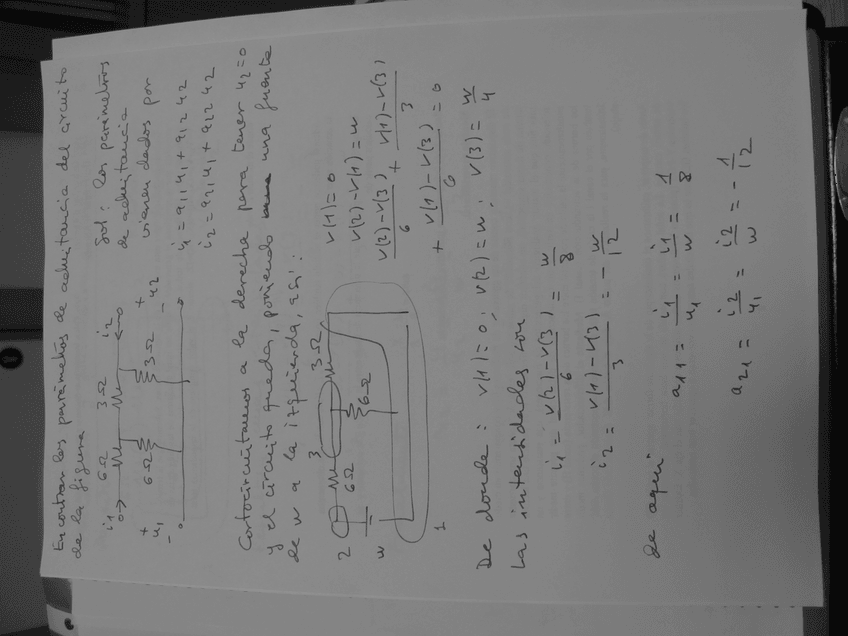 Encontrar los parámetros de admitancia del circuito
de la figura
6Ω 3Ω
i1 i2
+ u1 - 6Ω 3Ω + u2 -
Sol: Los parámetros
de admitancia
vienen dados por
i1 = a11 u1 + a12 u2
i2 = a21 u1 + a22 u2
Cortocircuitamos a la derecha para tener u2=0
y el circuito queda, poniendo una fuente
de w a la izquierda, así:
2 3 3Ω
6Ω 6Ω
w
1
v(1)=0
v(2)-v(1)=w
v(2)-v(3)/6 + v(1)-v(3)/3
+ v(1)-v(3)/6 = 0
De donde: v(1)=0; v(2)=w; v(3)=w/4
Las intensidades son
i1 = v(2)-v(3)/6 = w/8
i2 = v(1)-v(3)/3 = -w/12
de aquí
a11 = i1/u1 = i1/w = 1/8
a21 = i2/u1 = i2/w = -1/12